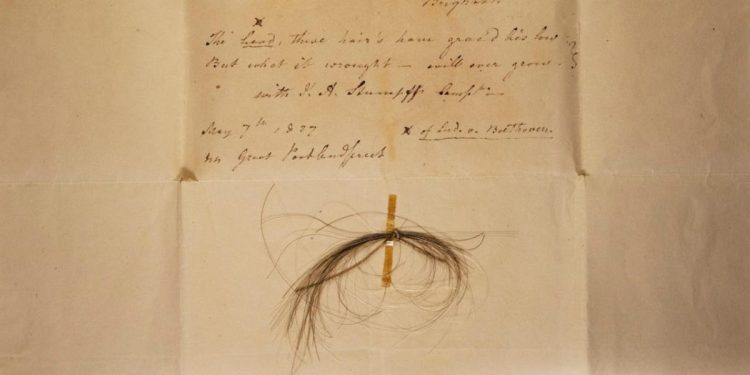 x
The head, these hair's have grac'd lies low -
But what it wrought — will ever grow -
with J. A. Stumpff's Compts -
May 7th 1827 x of Lud. v. Beethoven.
44 Great Portland Street